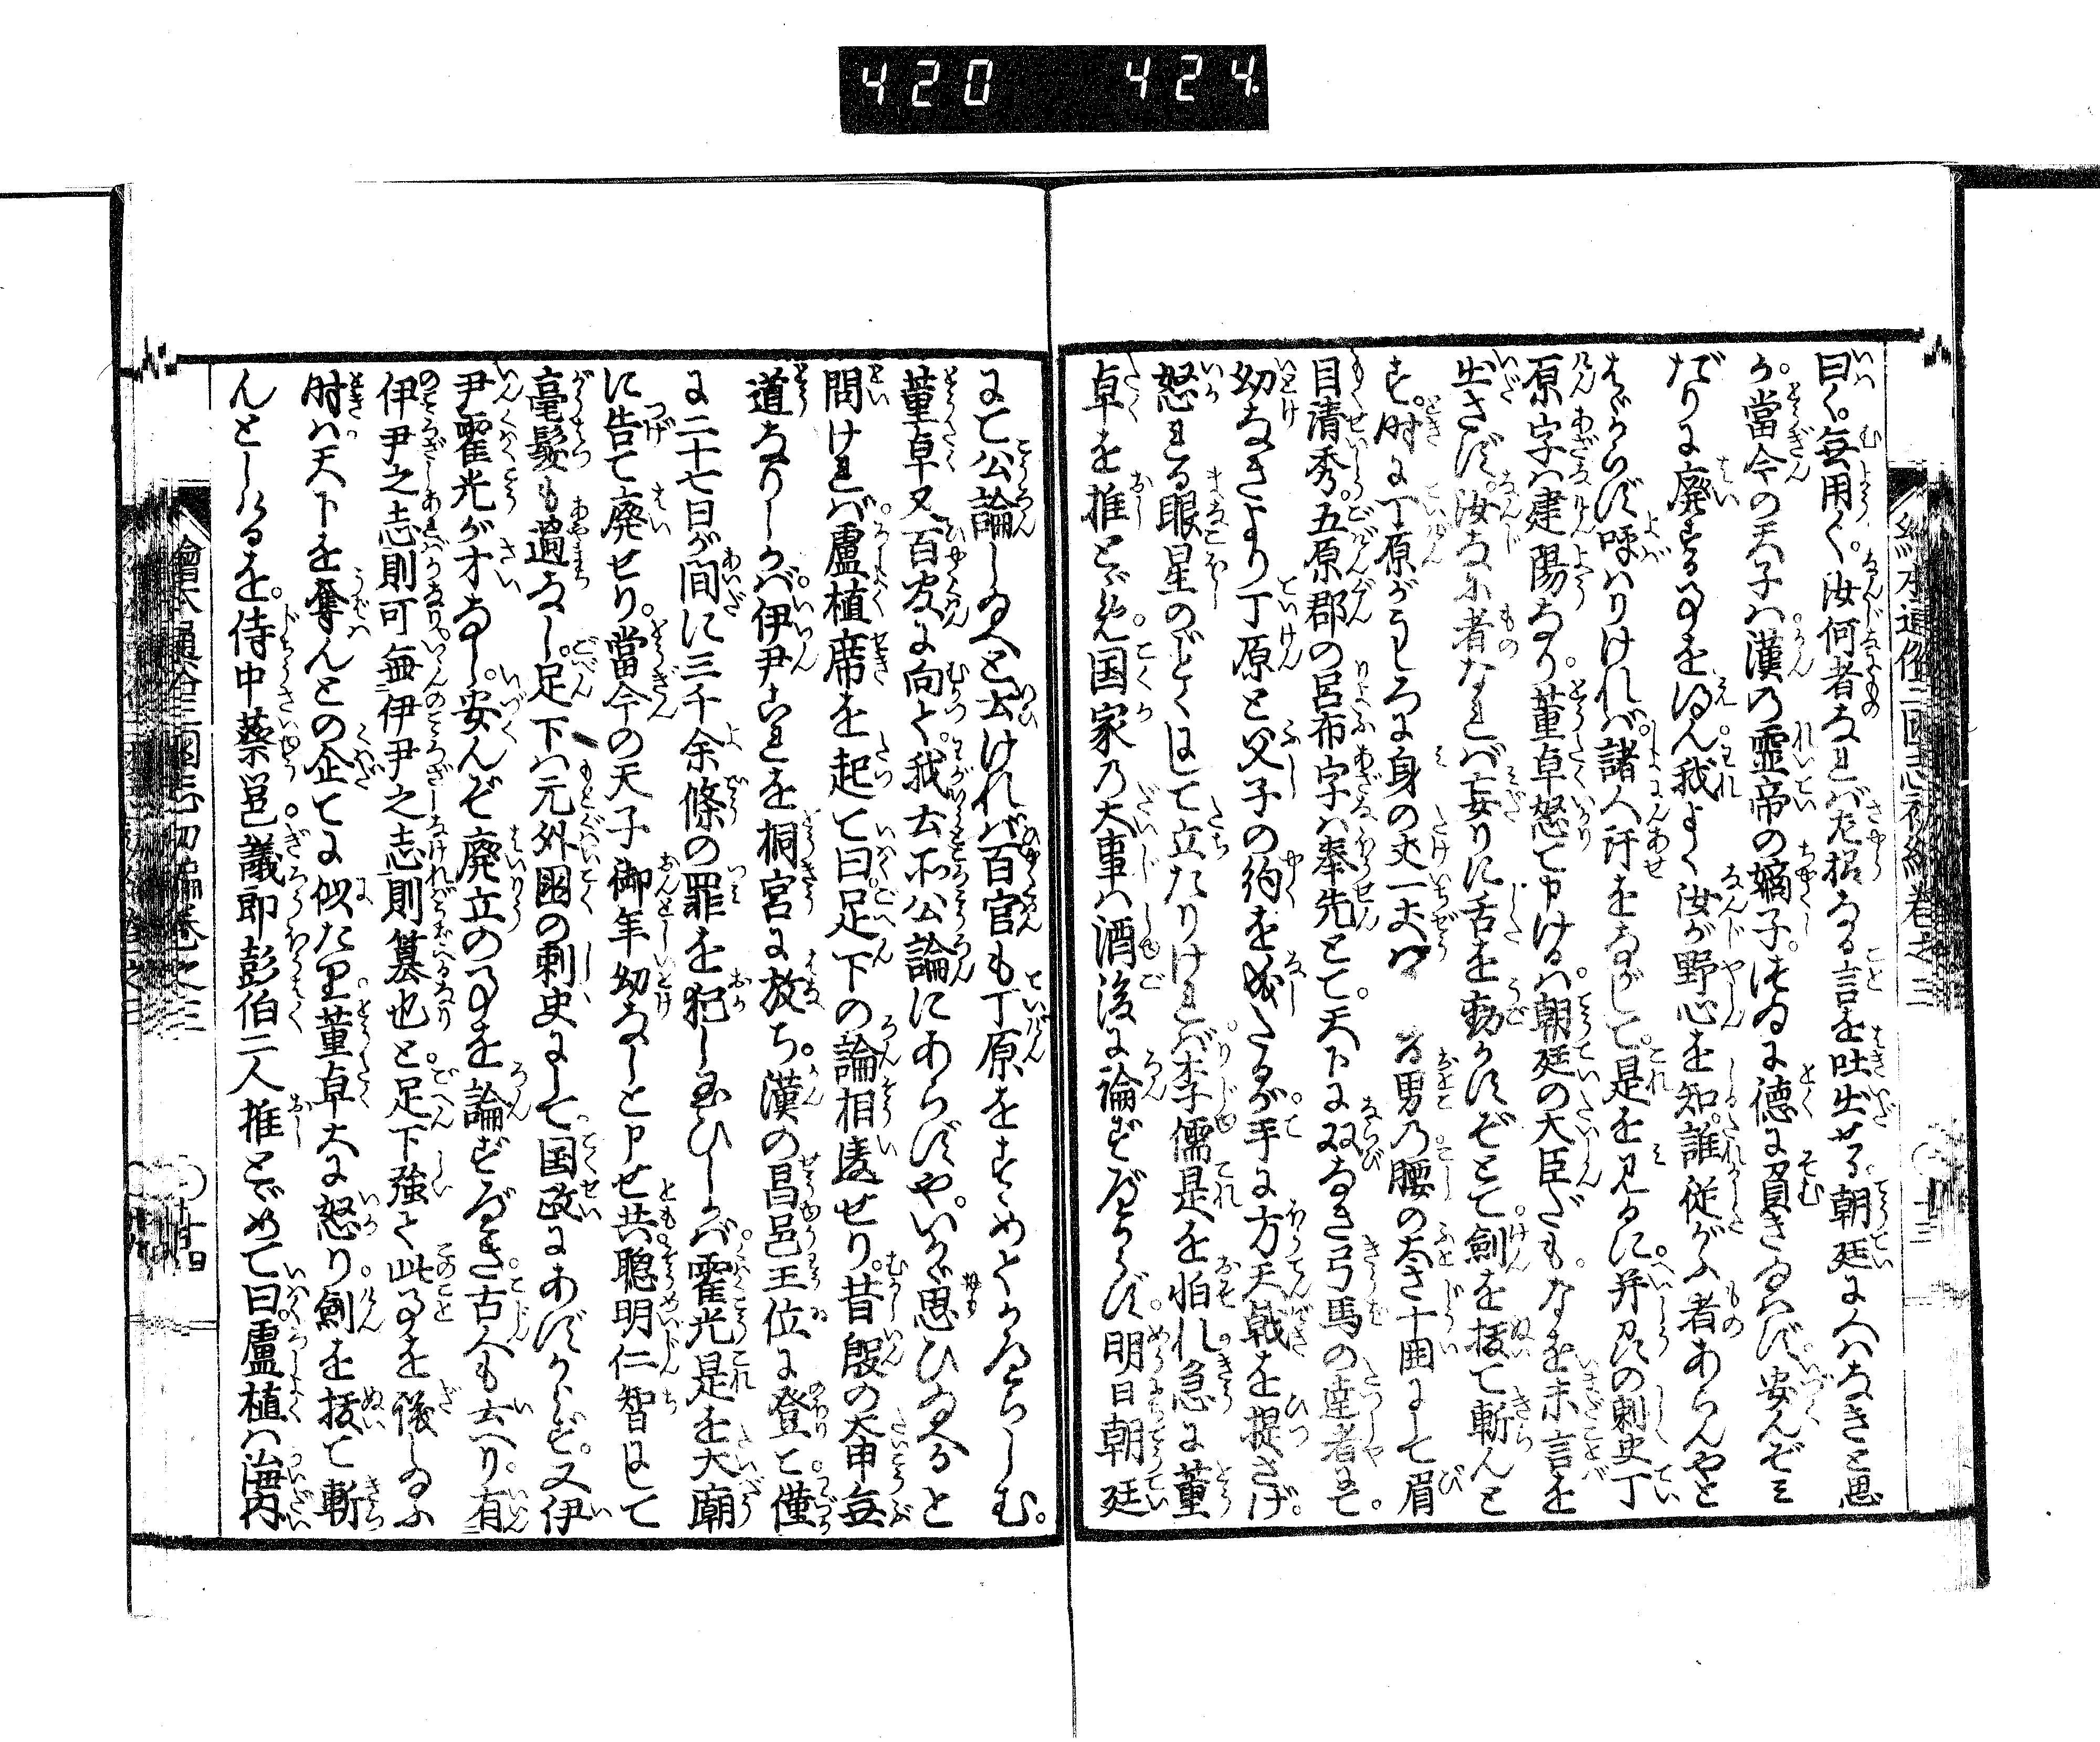 420 424
繪本通俗三國志初編卷之三
曰く無用〱汝何者なれば左様なる言を吐出せる朝廷に人はなきと思
ふ當今の天子は漢の靈帝の嫡子つゐに德に負き給はず安んぞみ
だりに廃する事を得ん我よく汝が野心を知誰従がふ者あらんやと
はゞからず呼はりければ諸人汗をながして是を見るに并州の刺史丁
原字は建陽なり董卓怒て申けるは朝廷の大臣だもなを未言を
出さず汝なに者なれば妄りに舌を動かすぞとて劍を抜て斬んと
す時に丁原がうしろに身の丈一丈 る男の腰の太さ十囲にして眉
目清秀五原郡の呂布字は奉先とて天下に双なき弓馬の達者にて
幼なきより丁原と父子の約を成たるが手に方天戟を提さげ
怒れる眼星のごとくにして立たりければ李儒是を怕れ急に董
卓を推とゞめ国家の大事は酒後に論ずべからず明日朝廷
にて公論し給へと云ければ百官も丁原をすゝめとりかへらしむ
董卓又百官に向て我云所公論にあらずやいかゞ思ひ給ふと
問ければ盧植席を起て曰足下の論相違せり昔殷の太甲無
道なりしかば伊尹これを桐宮に放ち漢の昌邑王位に登て僅
に二十七日が間に三千余條の罪を犯し玉ひしかば霍光是を大廟
に告て廃せり當今の天子御年幼なしと申せ共聡明仁智にして
毫髪も過なし足下は元外國の刺史にして国政にあずからず又伊
尹霍光が才なし安んぞ廃立の事を論ずべき古人も云へり有
伊尹之志則可無伊尹之志則簒也と足下強て此事を議し給ふ
時は天下を奪んとの企てに似たり董卓大に怒り劍を抜て斬
んとしけるを侍中蔡邕議郎彭伯二人推とゞめて曰盧植は海内
繪本通俗三國志初編卷之三